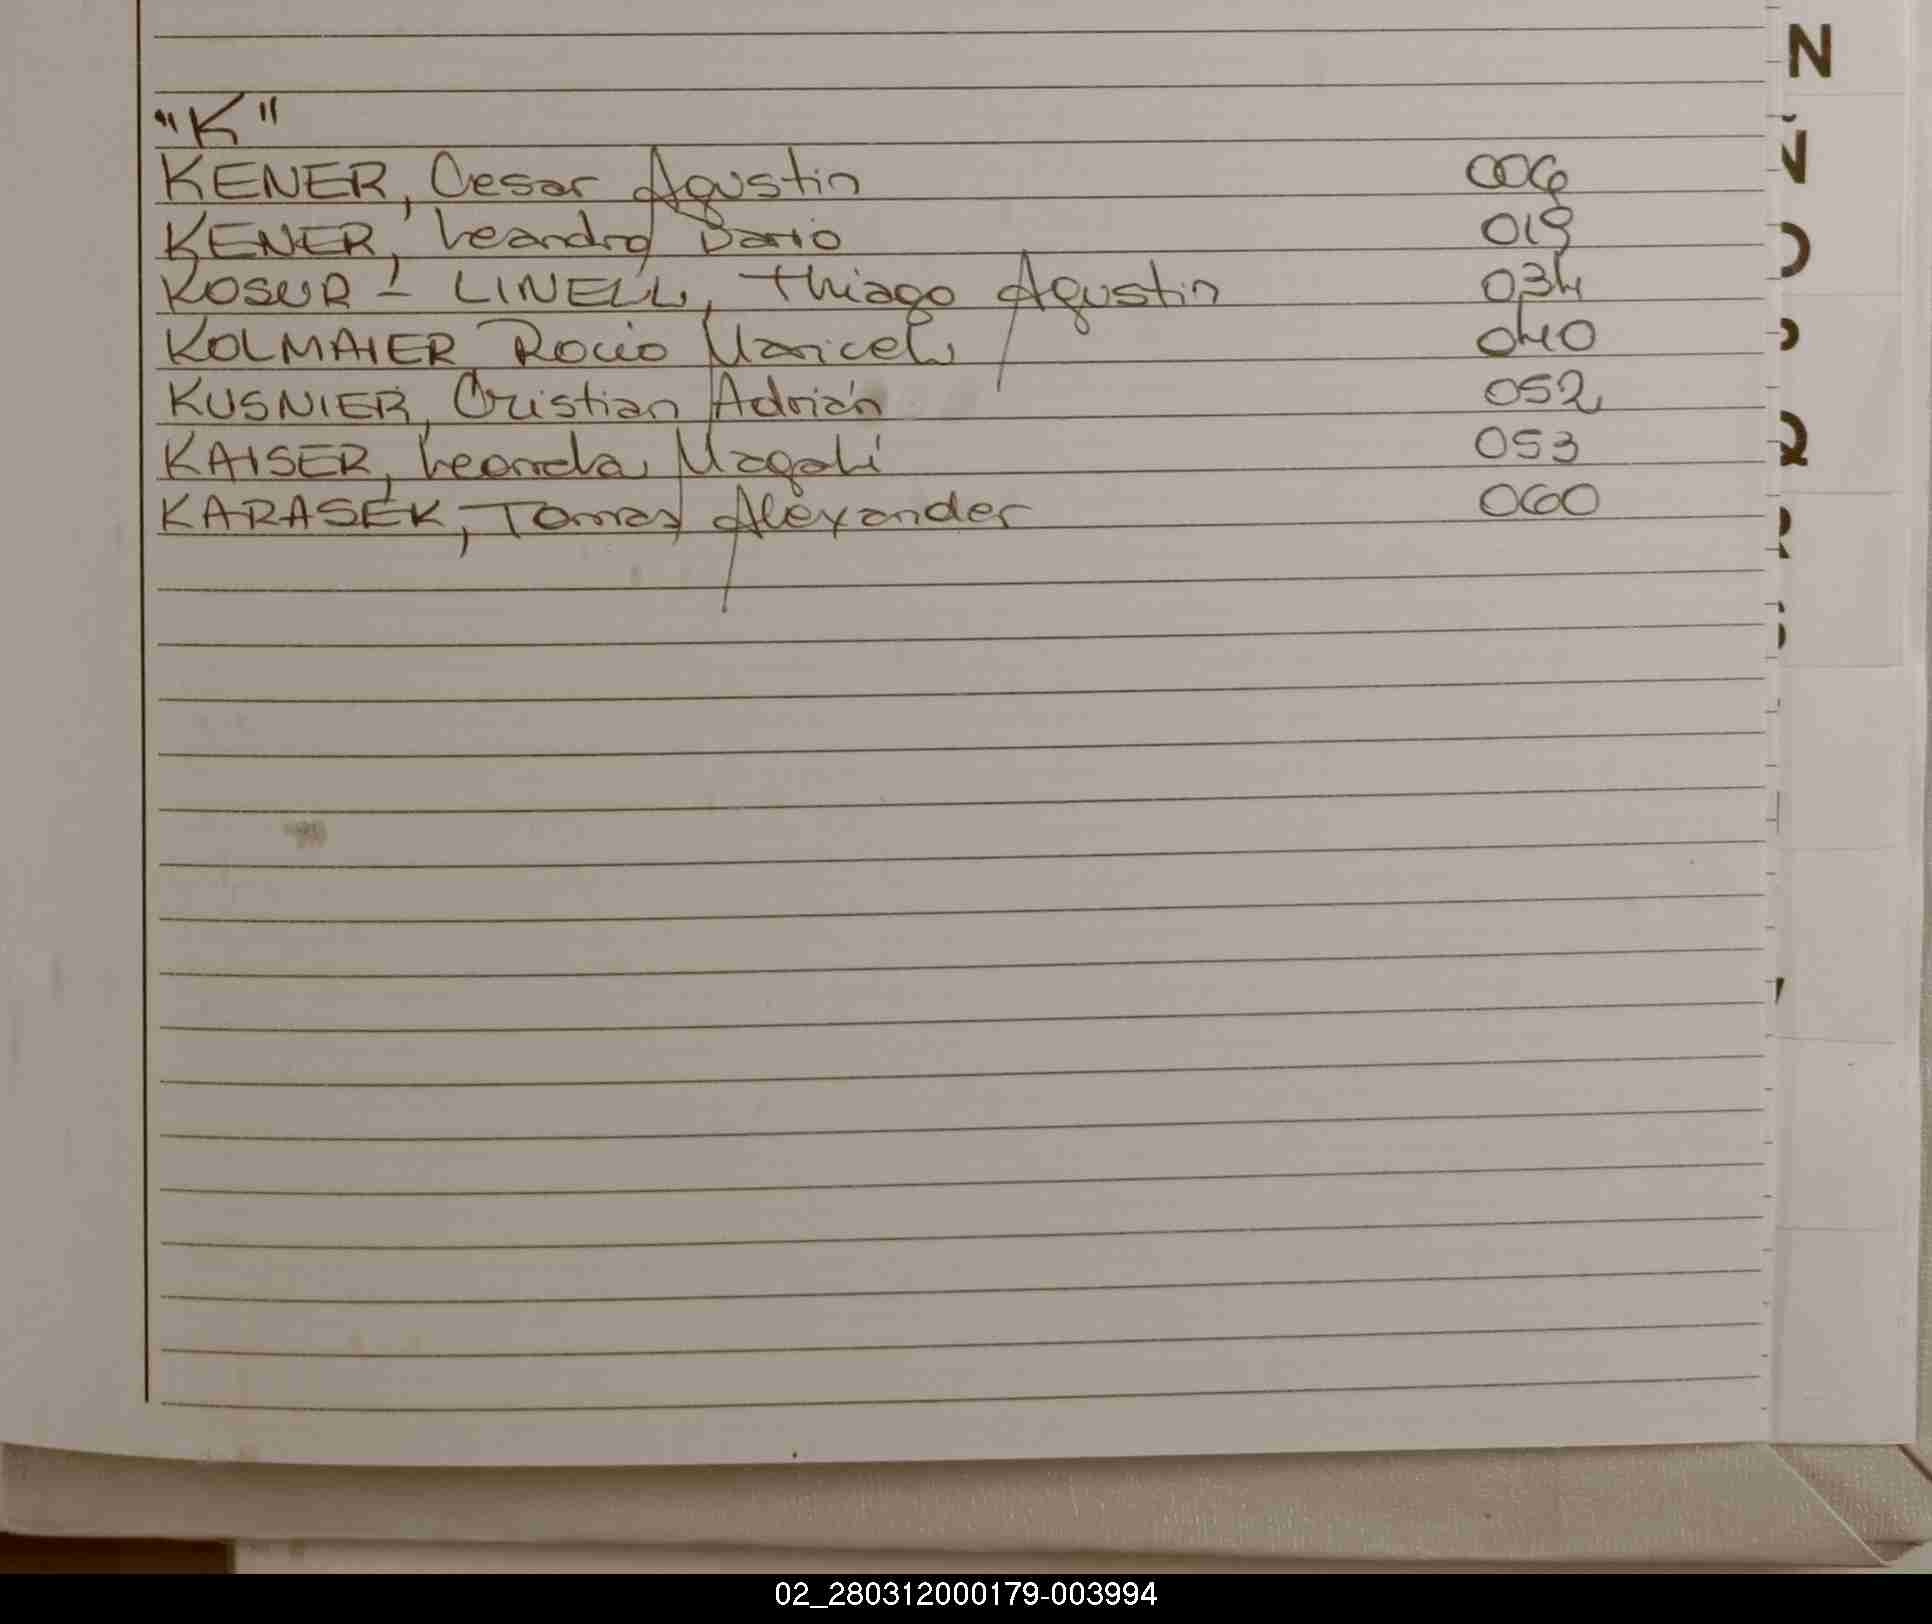 "K"
KENER, Cesar Agustin 006
KENER, Leandro Dario 019
KOSUR - LINELL, Thiago Agustin 034
KOLMAIER Rocio Maricel 040
KUSNIER, Cristian Adrián 052
KAISER, Leonela Magalí 053
KARASEK, Tomas Alexander 060
N
Ñ
O
P
Q
R
S
02_280312000179-003994